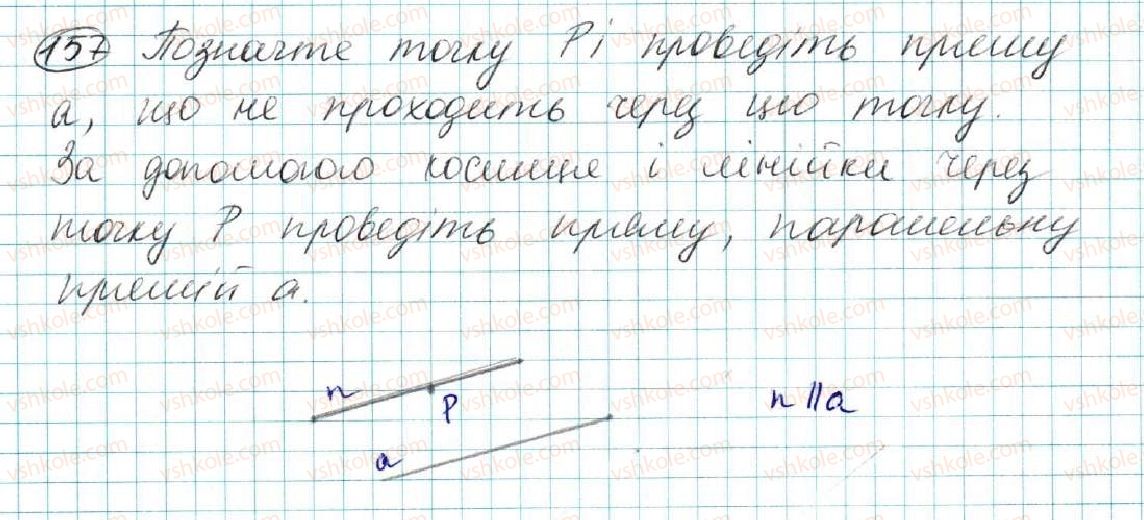 157 Позначте точку P і проведіть пряму
a, що не проходить через цю точку.
За допомогою косинця і лінійки через
точку P проведіть пряму, паралельну
прямій a.
n
P
n || a
a
vshkole.com